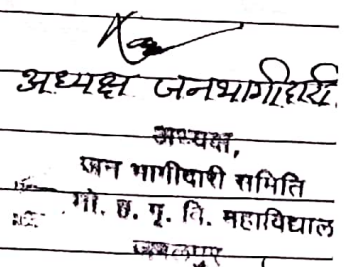 अध्यक्ष जनभागीदारी
अध्यक्ष,
जन भागीदारी समिति
गो. छ. गृ. वि. महाविद्याल
जबलपुर